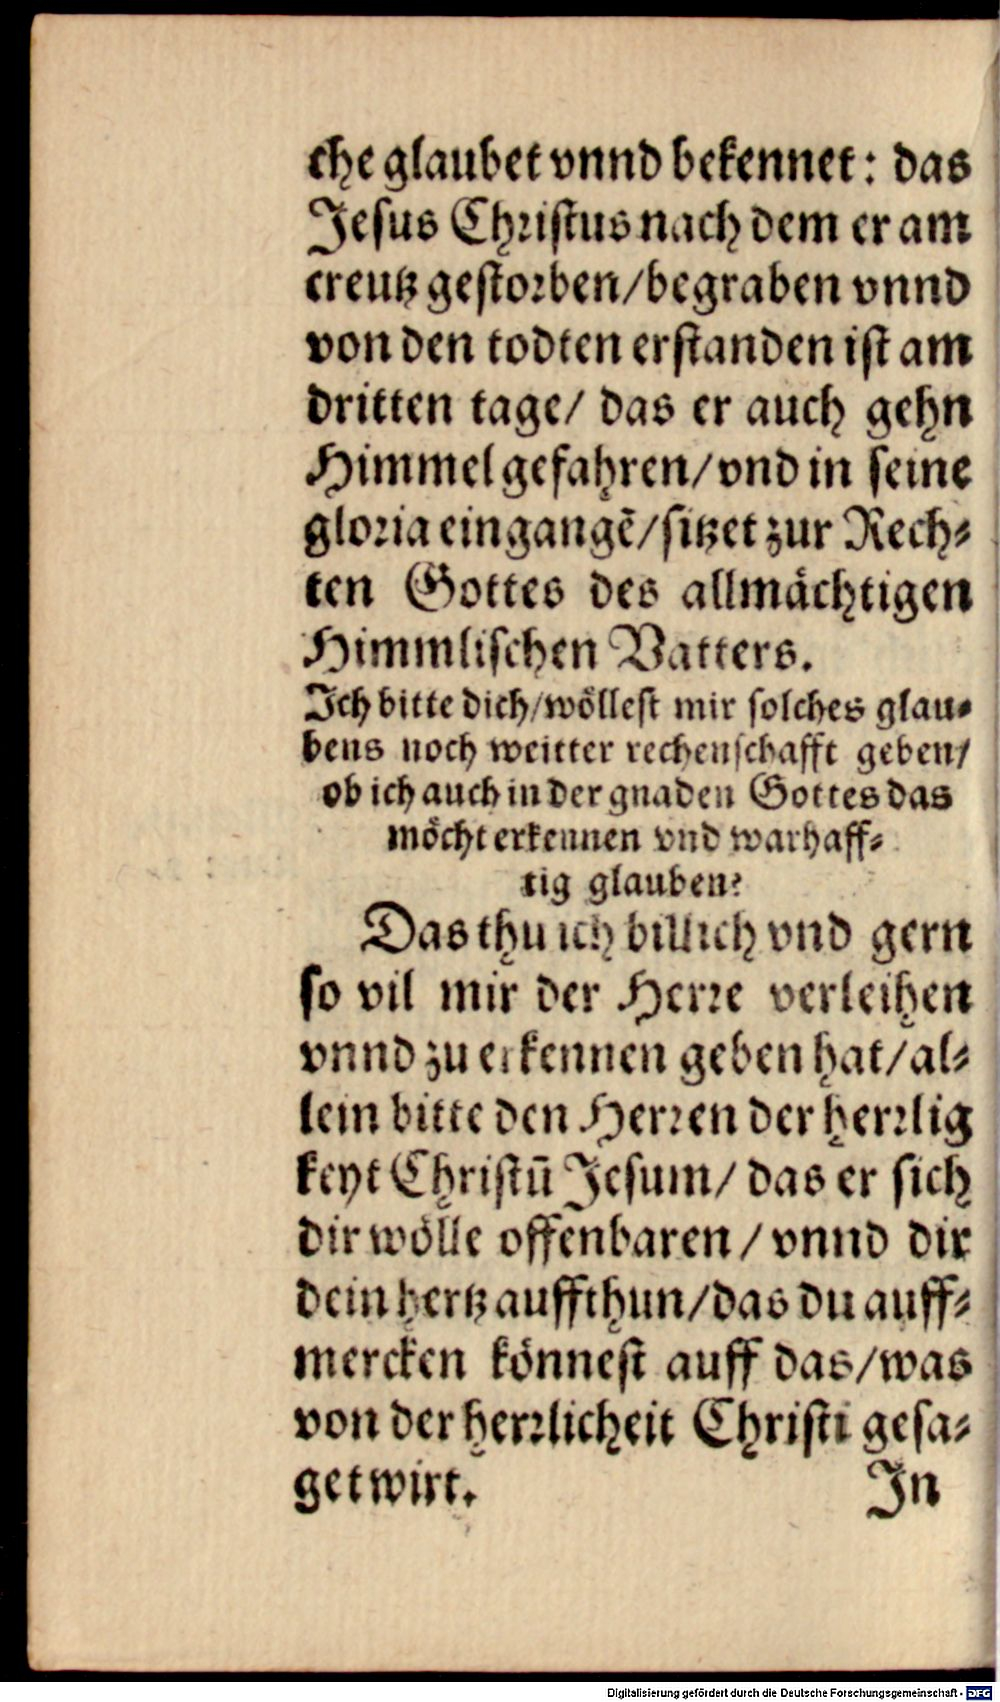 che glaubet vnnd bekennet: das
Jesus Christus nach dem er am
creutz gestorben/begraben vnnd
von den todten erstanden ist am
dritten tage/ das er auch gehn
Himmel gefahren/vnd in seine
gloria eingangē/sitzet zur Rech⸗
ten Gottes des allmächtigen
Himmlischen Vatters.
Ich bitte dich/wöllest mir solches glau⸗
bens noch weitter rechenschafft geben/
ob ich auch in der gnaden Gottes das
möcht erkennen vnd warhaff⸗
tig glauben?
Das thu ich billich vnd gern
so vil mir der Herre verleihen
vnnd zu erkennen geben hat/al⸗
lein bitte den Herren der herrlig
keyt Christū Jesum/ das er sich
dir wölle offenbaren/ vnnd dir
dein hertz auffthun/das du auff⸗
mercken könnest auff das/was
von der herrlicheit Christi gesa⸗
get wirt. In
Digitalisierung gefördert durch die Deutsche Forschungsgemeinschaft - DFG